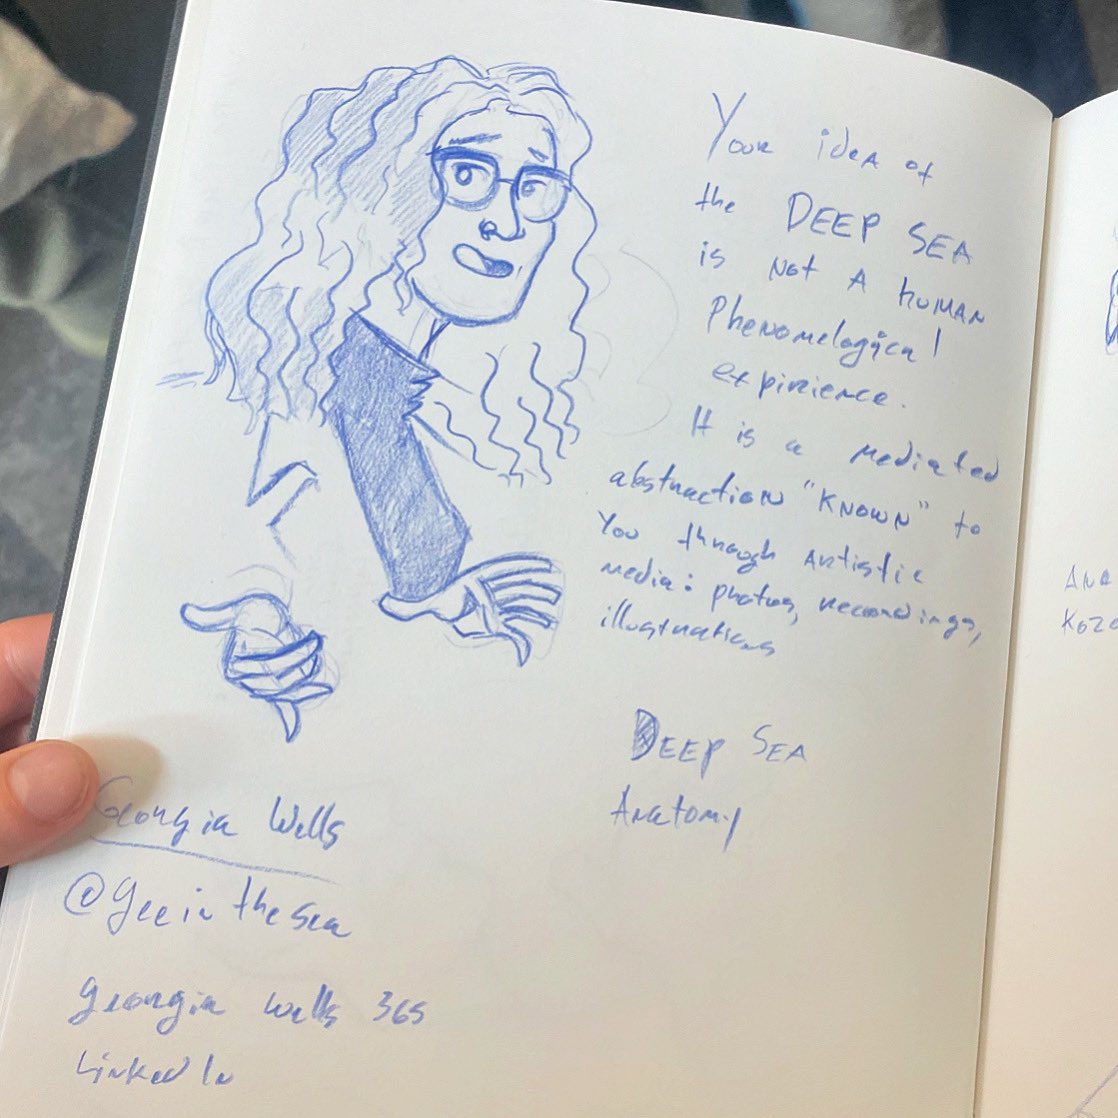 Your idea of
the DEEP SEA
is not a human
Phenomelogical
expirience.
It is a mediated
abstraction "KNOWN" to
You through artistic
media: photos, recordings,
illustrations
DEEP SEA
Anatomy
Georgia Wells
@geeinthesea
georgia wells 365
LinkedIn
Ana
Koz